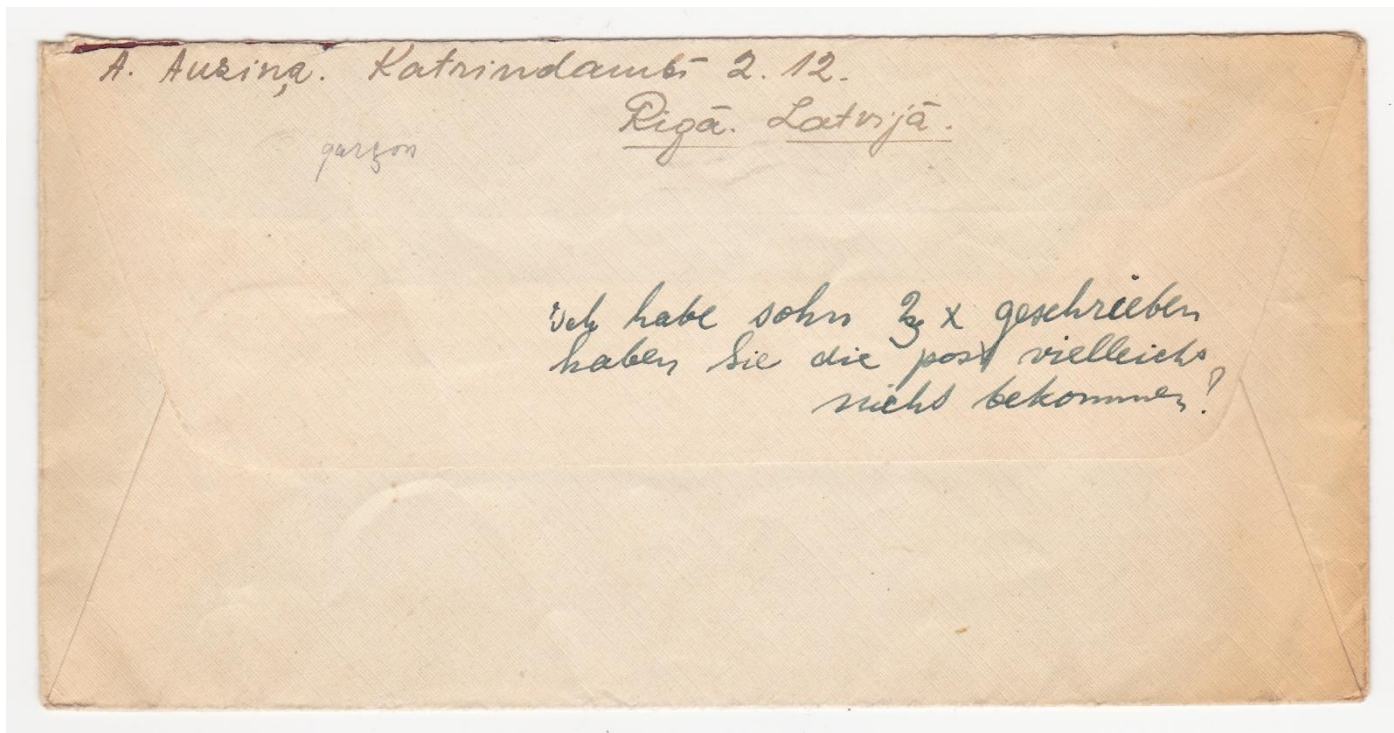 A. Auziņa. Katrindambī 2. 12.
Rīgā. Latvijā.
garzon
ich habe sohn 2 x geschrieben
haben Sie die post vielleicht
nicht bekommen?